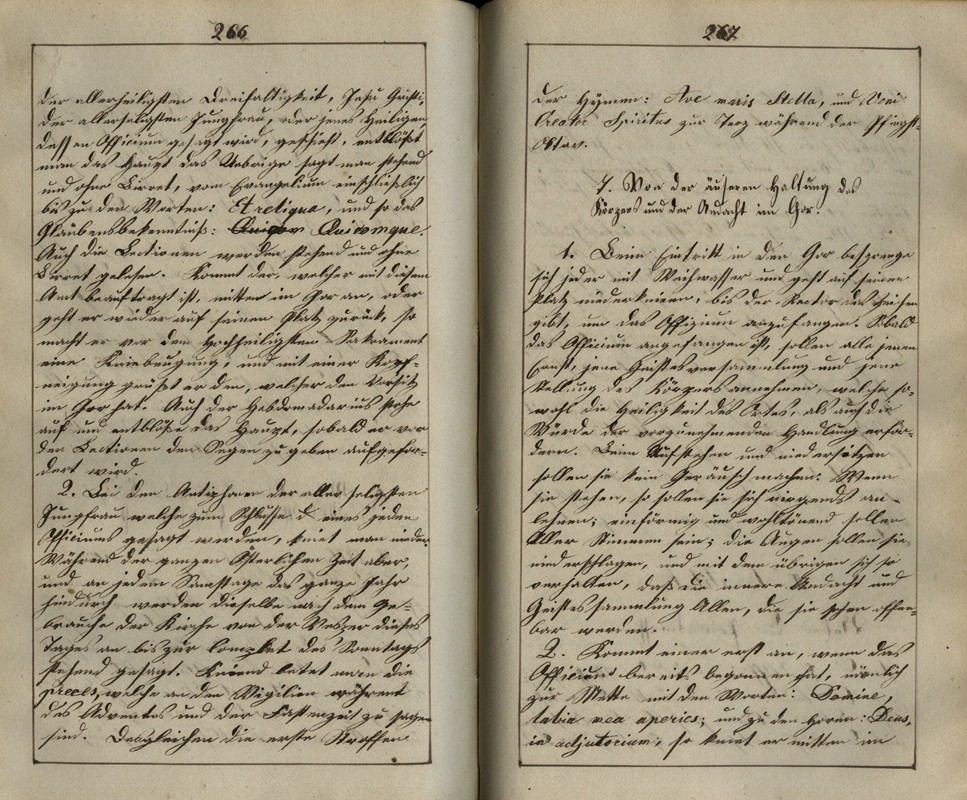 266
der allerheiligsten Dreifaltigkeit, Jesu Christi,
der allerseligsten Jungfrau, oder jenes Heiligen
dessen Officium gesagt wird, geschieht, entblößt
man das Haupt das Uebrige sagt man stehend
und ohne Birret, vom Evangelium einschließlich
bis zu den Worten: Et reliqua, und so das
Glaubensbekenntniß: Quicumque.
Auch die Lectionen werden stehend und ohne
Birret gelesen. Kommt der, welcher mit diesem
Amt beauftragt ist, mitten im Chor an, oder
geht er wieder auf seinen Platz zurück, so
macht er vor dem Hochheiligsten Sakrament
eine Kniebeugung, und mit einer Kopf-
neigung grüßt er den, welcher den Vorsitz
im Chor hat. Auch der Hebdomadarius stehe
auf und entblöße das Haupt, sobald er vor
den Lectionen den Segen zu geben aufgefor-
dert wird.
2. Bei den Antiphonen der aller seligsten
Jungfrau welche zum Schlusse d. eines jeden
Officiums gesagt werden, kniet man nieder.
Während der ganzen österlichen Zeit aber,
und an jedem Samstage das ganze Jahr
hindurch werden dieselbe nach dem Ge-
brauche der Kirche von der Vesper dieses
Tages an bis zur Complet des Sonntags
stehend gesagt. Knieend betet man die
preces, welche an den Vigilien während
des Adventes und der Fastenzeit zu sagen
sind. Desgleichen die erste Stroffen
267
der Hÿmnen: Ave maris Stella, und Veni
Creator Spiritus zur Terz während der Pfingst-
Oktav.
7. Von der äußeren Haltung des
Körpers und der Andacht im Chor.
1. Beim Eintritt in den Chor besprenge
sich jeder mit Weihwasser und geht auf seinen
Platz niederknieen, bis der Rector das Zeichen
gibt, um das Offizium anzufangen. Sobald
das Officium angefangen ist, sollen alle jenen
Ernst, jene Geistesversammlung und jene
Stellung des Körpers annehmen, welche so-
wohl die Heiligkeit des Ortes, als auch die
Würde der vorzunehmenden Handlung erfor-
dern. Beim Aufstehen und niedersetzen
sollen sie kein Geräusch machen: Wenn
sie stehen, so sollen sie sich nirgends an-
lehnen; einförmig und wohltönend sollen
Aller Stimmen sein; die Augen sollen sie
niederschlagen, und mit dem übrigen sich so
verhalten, daß die innere Andacht und
Geistessammlung Allen, die sie sehen offen-
bar werden.
2. Kommt einer erst an, wenn das
Officium bereits begonnen hat, nämlich
zur Mette mit den Worten: Domine,
labia mea aperies; und zu den Horen: Deus,
in adjutorium, so kniet er mitten im